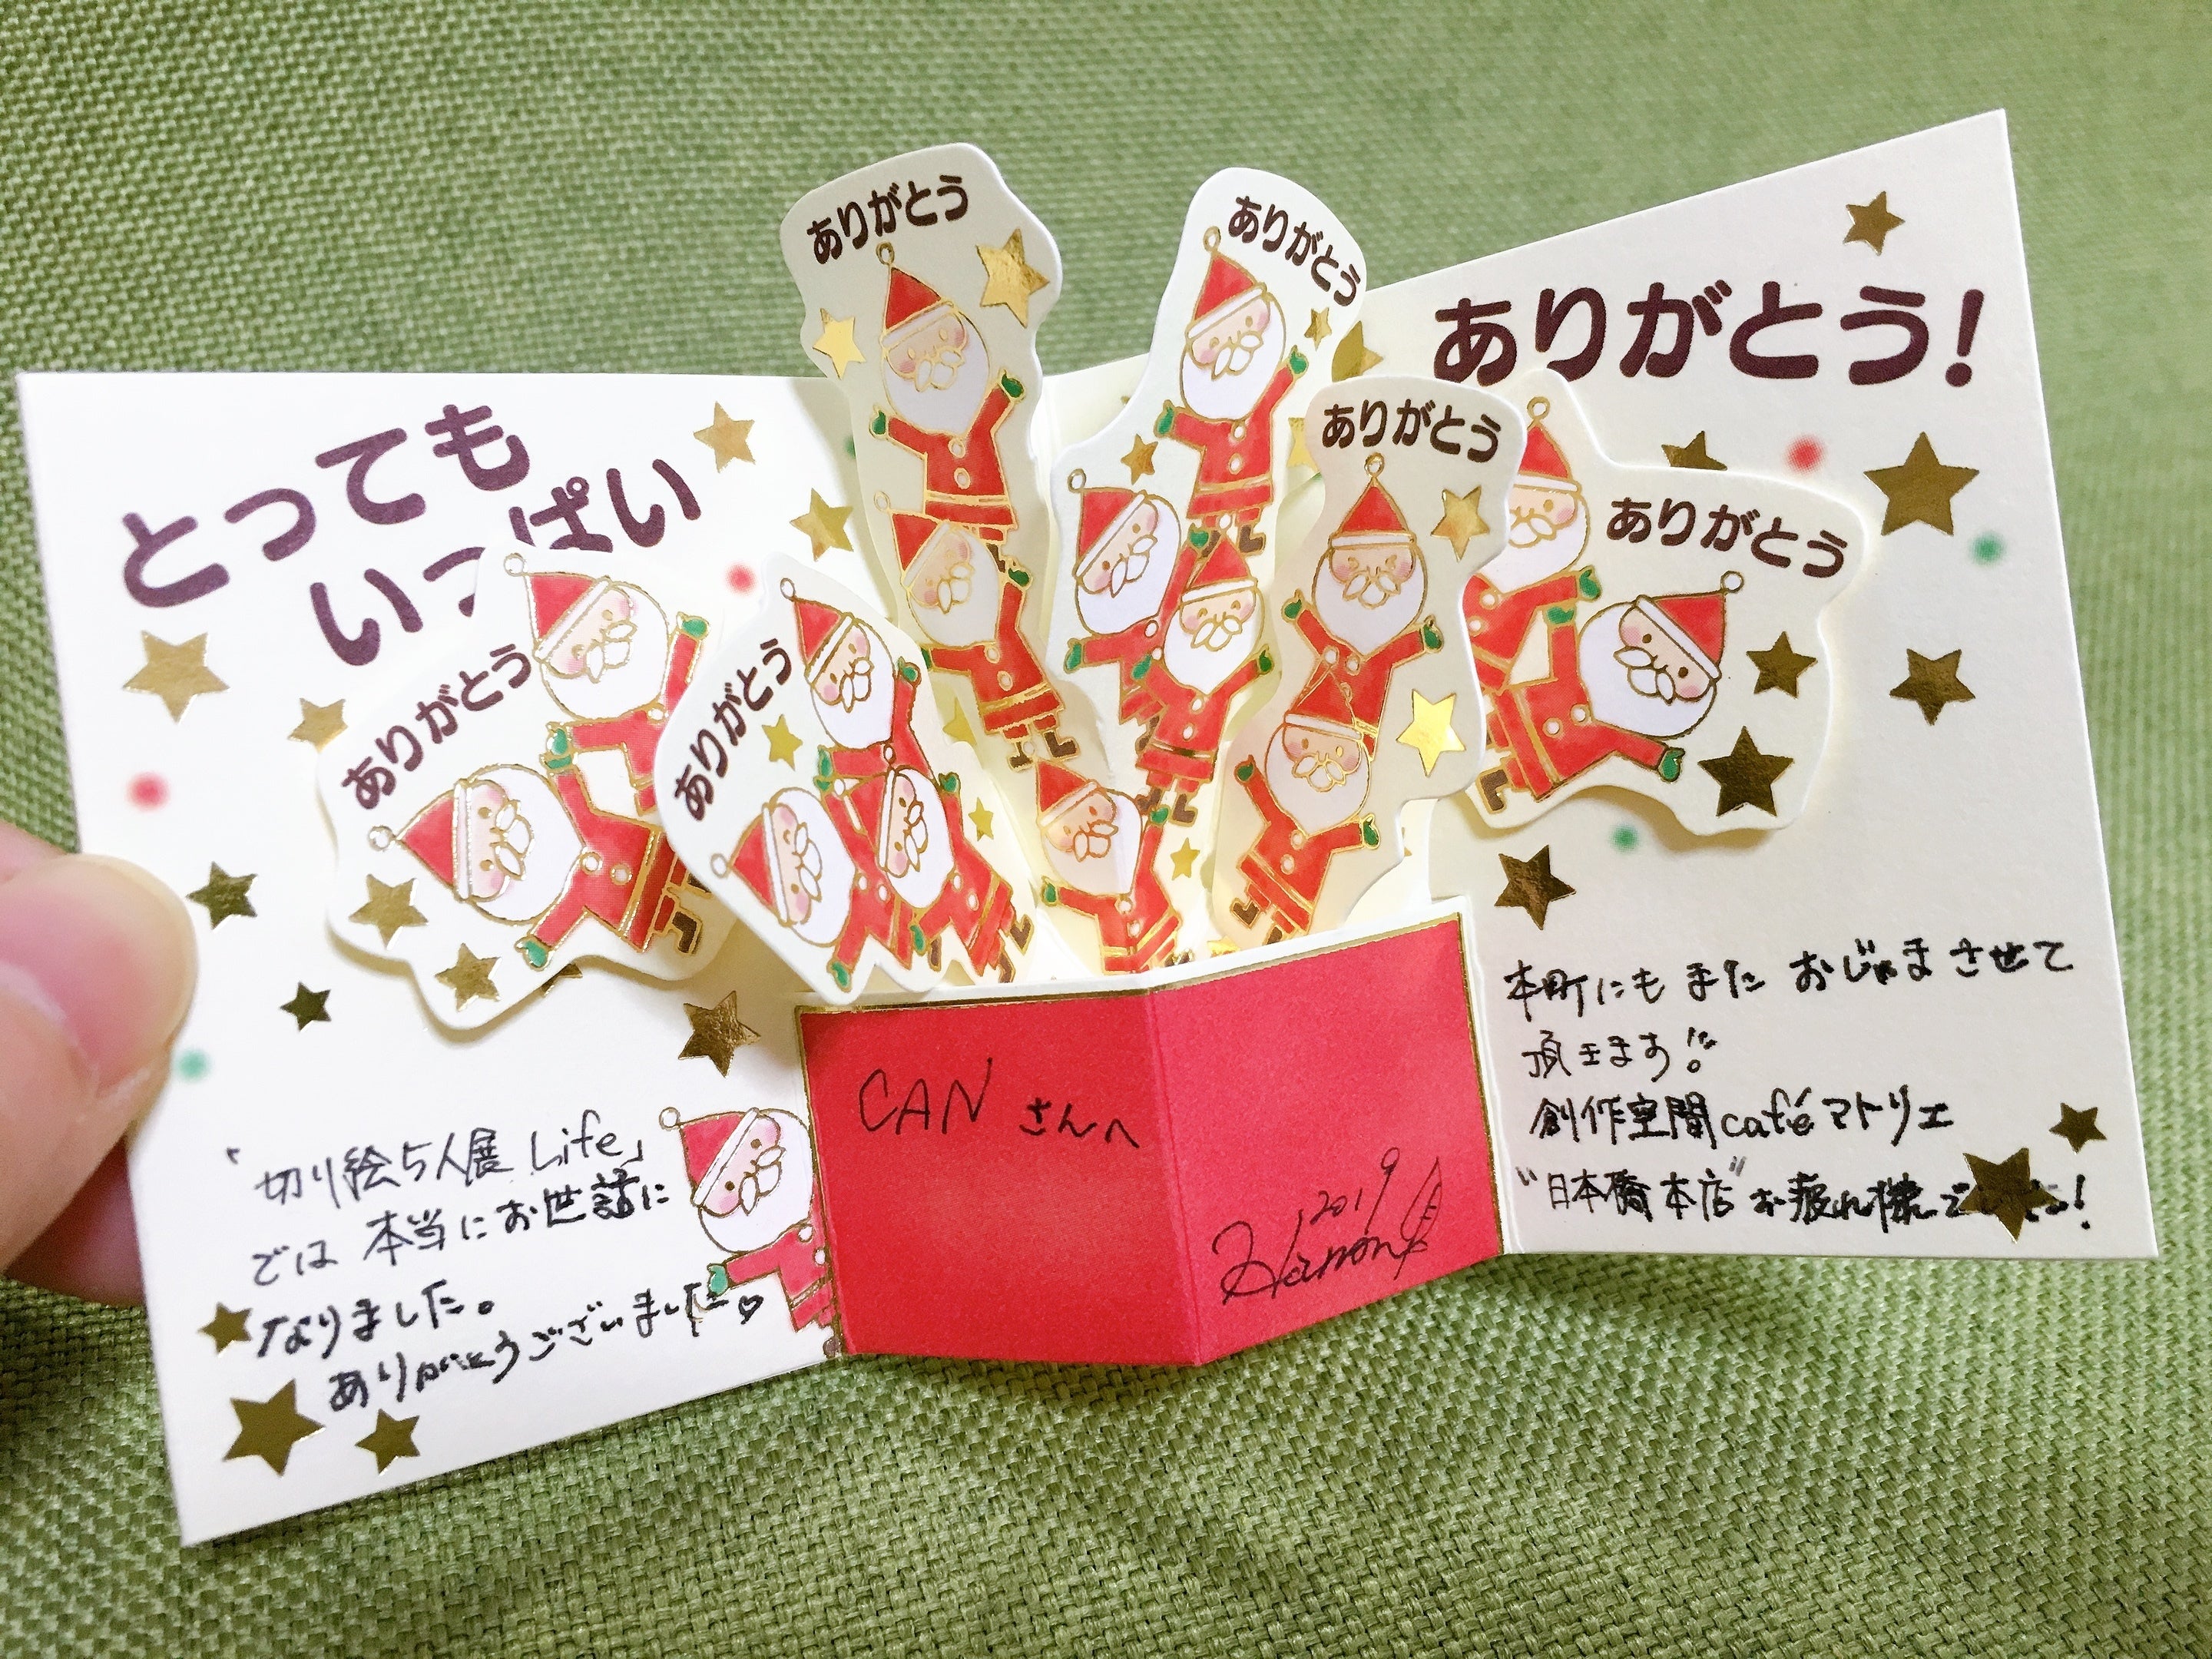 とっても
いっぱい
ありがとう!
ありがとう
ありがとう
ありがとう
ありがとう
ありがとう
ありがとう
「切り絵5人展 Life」
では 本当にお世話に
なりました。
ありがとうございました♡
CAN さんへ
2019
本町にもまた おじゃまさせて
頂きます!!
創作空間caféマトリエ
"日本橋本店"お疲れ様でした!